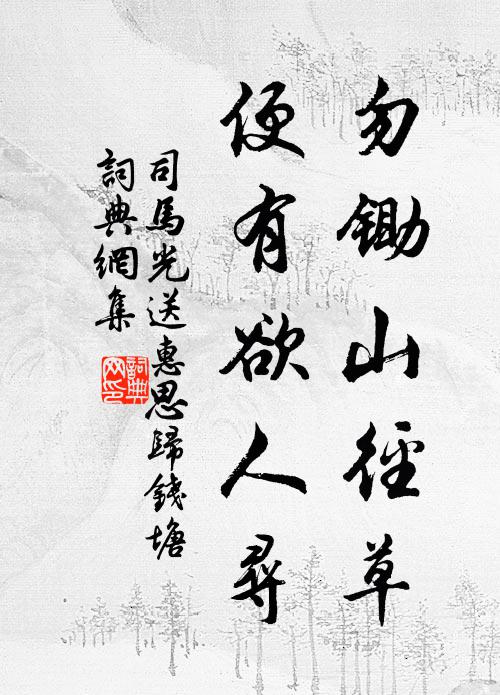 勿鋤山徑草
便有欲人尋
司馬光送惠思歸錢塘
詞典網集
詞典
网印